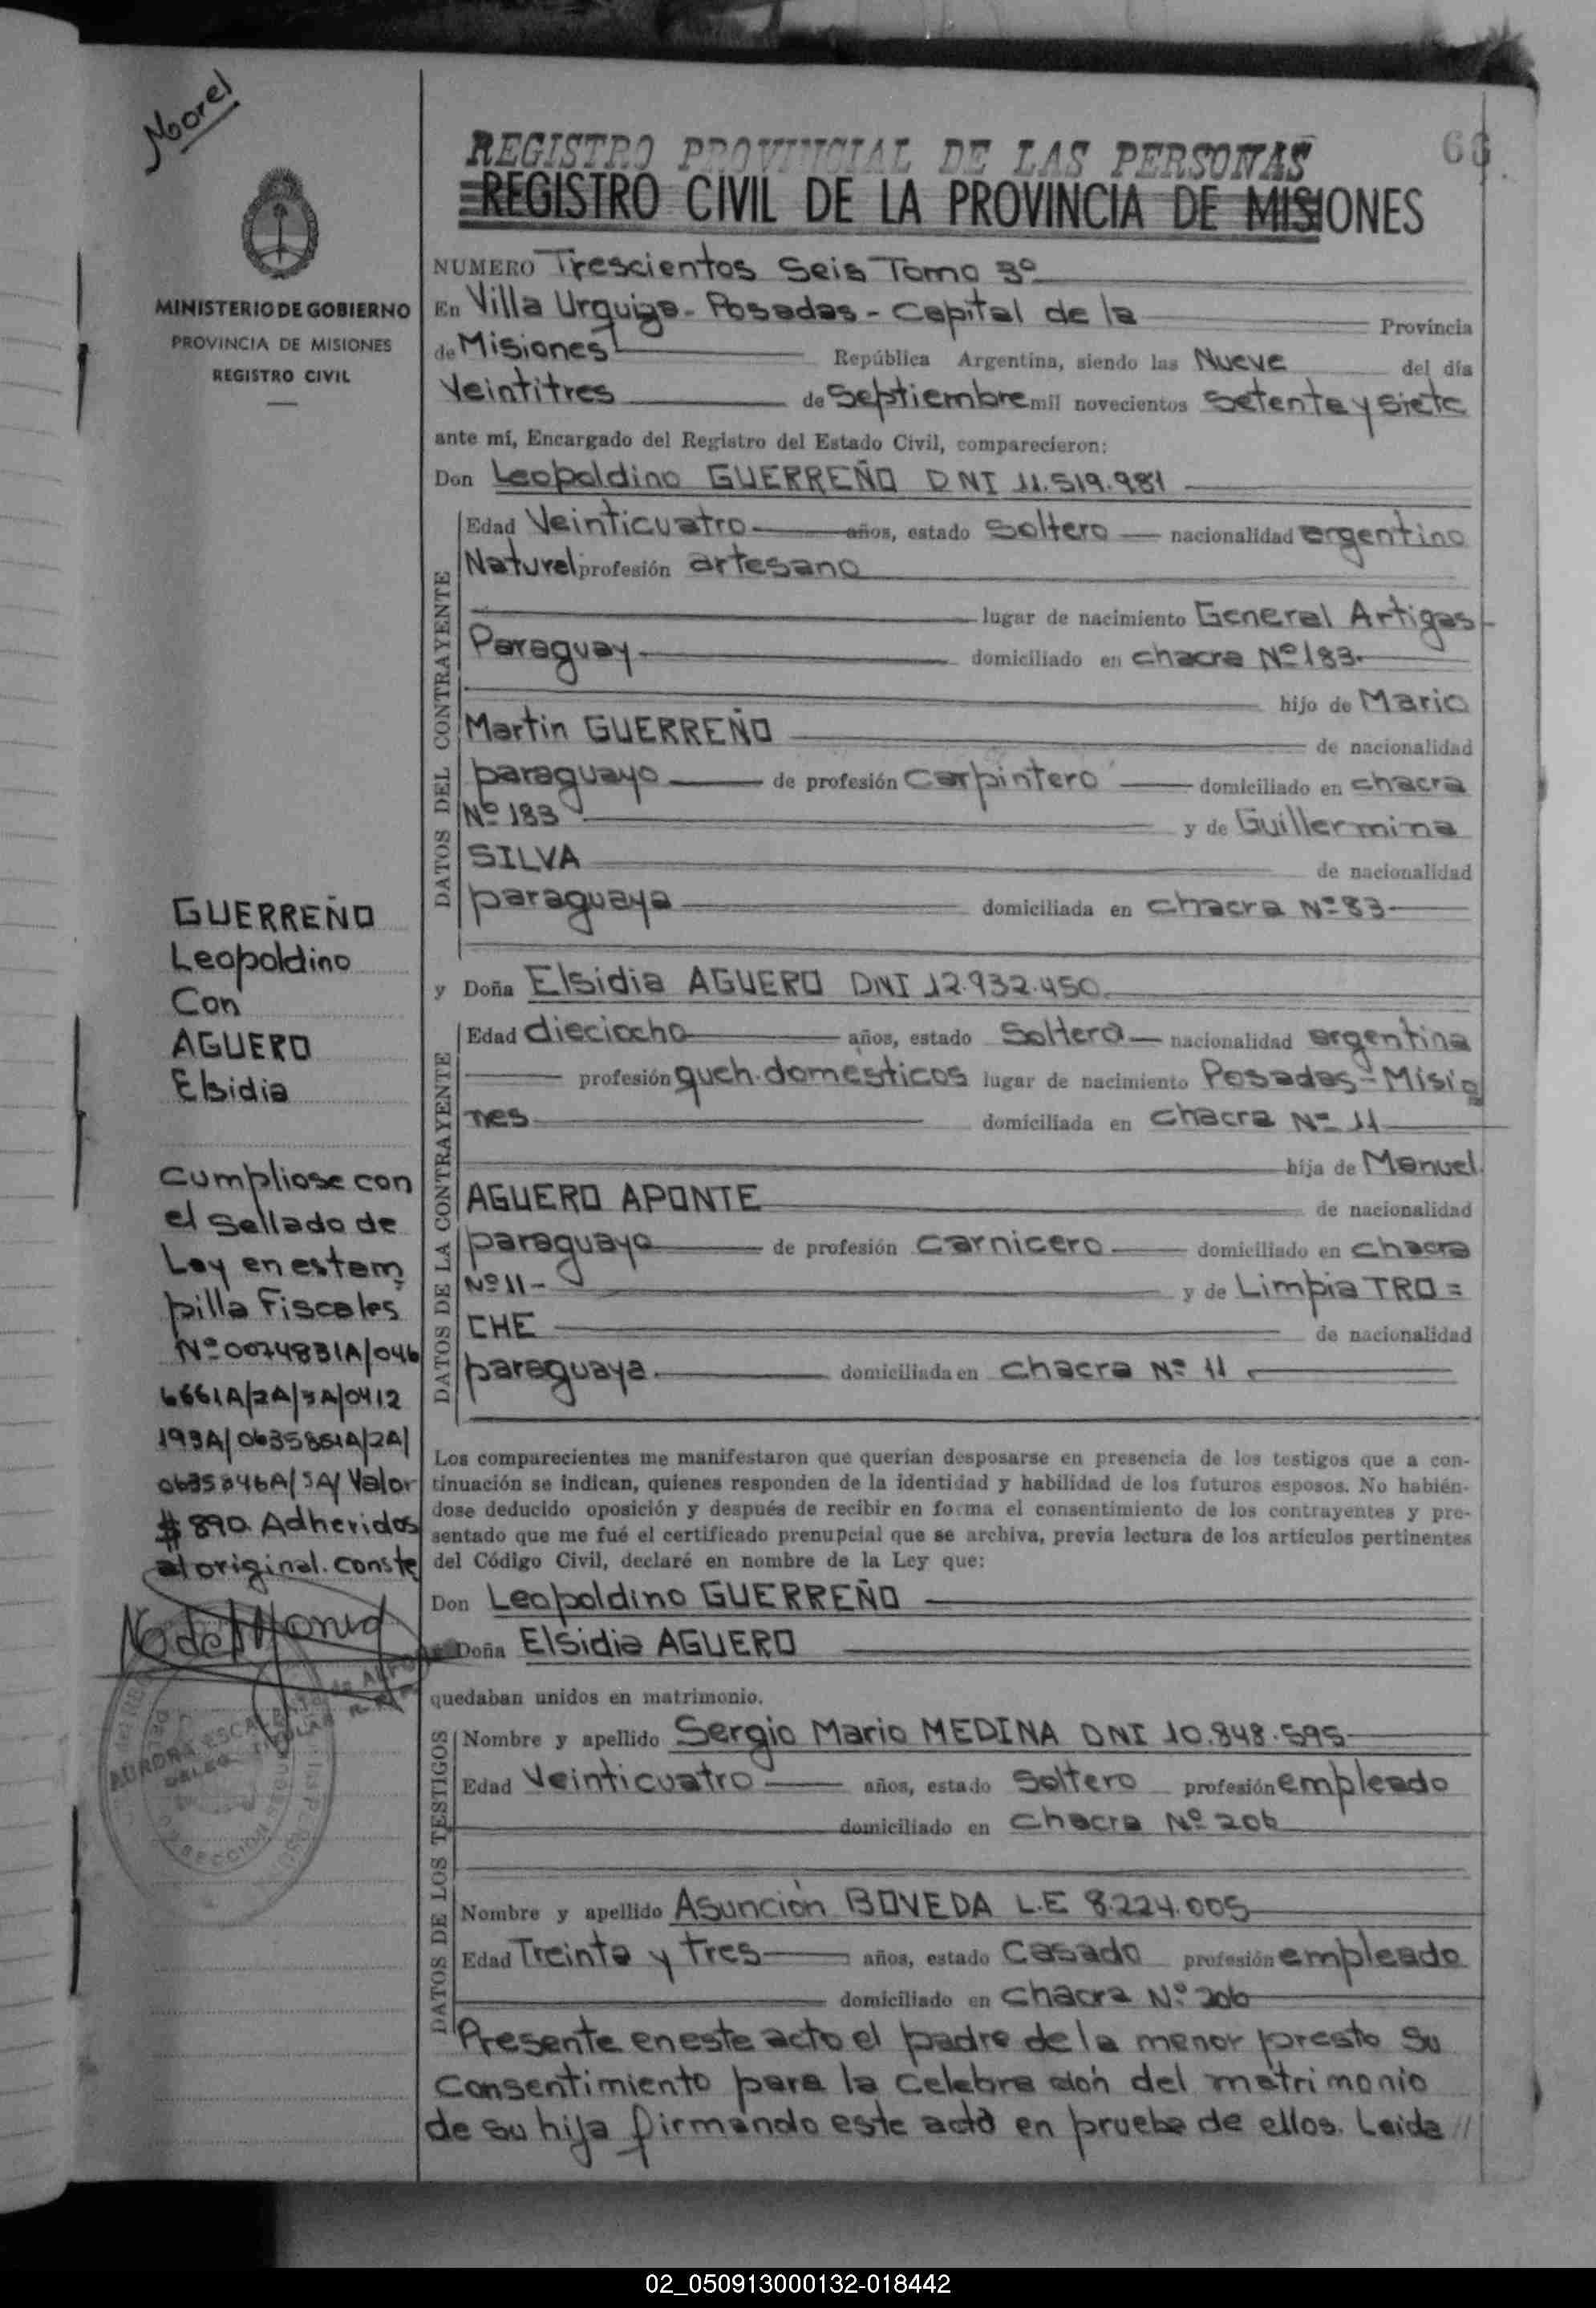 Morel
MINISTERIO DE GOBIERNO
PROVINCIA DE MISIONES
REGISTRO CIVIL
GUERREÑO
Leopoldino
Con
AGUERO
Elsidia
Cumpliose con
el Sellado de
Ley en estam
pilla Fiscales
Nº 0074831A/046
6661A/2A/3A/0412
193A/0635861A/2A/
0635846A/3A/ Valor
$ 890. Adheridos
al original. Conste
66
REGISTRO PROVINCIAL DE LAS PERSONAS
REGISTRO CIVIL DE LA PROVINCIA DE MISIONES
NUMERO Trescientos Seis Tomo 3º
En Villa Urquiza - Posadas - Capital de la Provincia
de Misiones República Argentina, siendo las Nueve del día
Veintitres de Septiembre mil novecientos Setenta y Siete
ante mí, Encargado del Registro del Estado Civil, comparecieron:
Don Leopoldino GUERREÑO DNI 11.519.981
DATOS DEL CONTRAYENTE
Edad Veinticuatro años, estado Soltero nacionalidad argentino
Natural profesión artesano
lugar de nacimiento General Artigas -
Paraguay domiciliado en chacra Nº 183.
hijo de Mario
Martin GUERREÑO de nacionalidad
paraguayo de profesión Carpintero domiciliado en chacra
Nº 183 y de Guillermina
SILVA de nacionalidad
paraguaya domiciliada en chacra Nº 83
y Doña Elsidia AGUERO DNI 12.932.450
DATOS DE LA CONTRAYENTE
Edad dieciocho años, estado Soltera nacionalidad argentina
profesión queh. domésticos lugar de nacimiento Posadas - Misio
nes domiciliada en Chacra Nº 11
hija de Manuel
AGUERO APONTE de nacionalidad
paraguayo de profesión Carnicero domiciliado en Chacra
Nº 11 - y de Limpia TRO =
CHE de nacionalidad
paraguaya domiciliada en Chacra Nº 11
Los comparecientes me manifestaron que querían desposarse en presencia de los testigos que a con-
tinuación se indican, quienes responden de la identidad y habilidad de los futuros esposos. No habién-
dose deducido oposición y después de recibir en forma el consentimiento de los contrayentes y pre-
sentado que me fué el certificado prenupcial que se archiva, previa lectura de los artículos pertinentes
del Código Civil, declaré en nombre de la Ley que:
Don Leopoldino GUERREÑO
Doña Elsidia AGUERO
quedaban unidos en matrimonio.
DATOS DE LOS TESTIGOS
Nombre y apellido Sergio Mario MEDINA DNI 10.848.595
Edad Veinticuatro años, estado Soltero profesión empleado
domiciliado en Chacra Nº 206
Nombre y apellido Asunción BOVEDA L.E 8.224.005
Edad Treinta y Tres años, estado Casado profesión empleado
domiciliado en Chacra Nº 206
Presente en este acto el padre de la menor presto su
Consentimiento para la Celebra ción del matrimonio
de su hija firmando este acto en prueba de ellos. Leida //
02_050913000132-018442